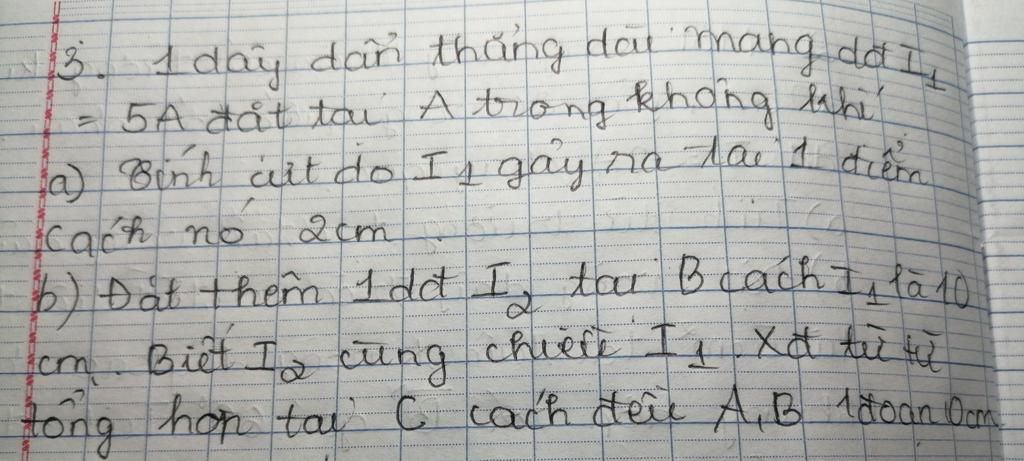 3. 1 dây dẫn thẳng dài mang dđ I1
= 5A đặt tại A trong không khí
a) Tính cưt do I1 gây ra tại 1 điểm
cách nó 2cm.
b) Đặt thêm 1 dđ I2 tại B cách I1 là 10
cm. Biết I2 cùng chiều I1. Xđ từ từ
tổng hợp tại C cách đều A, B 1 đoạn 10cm